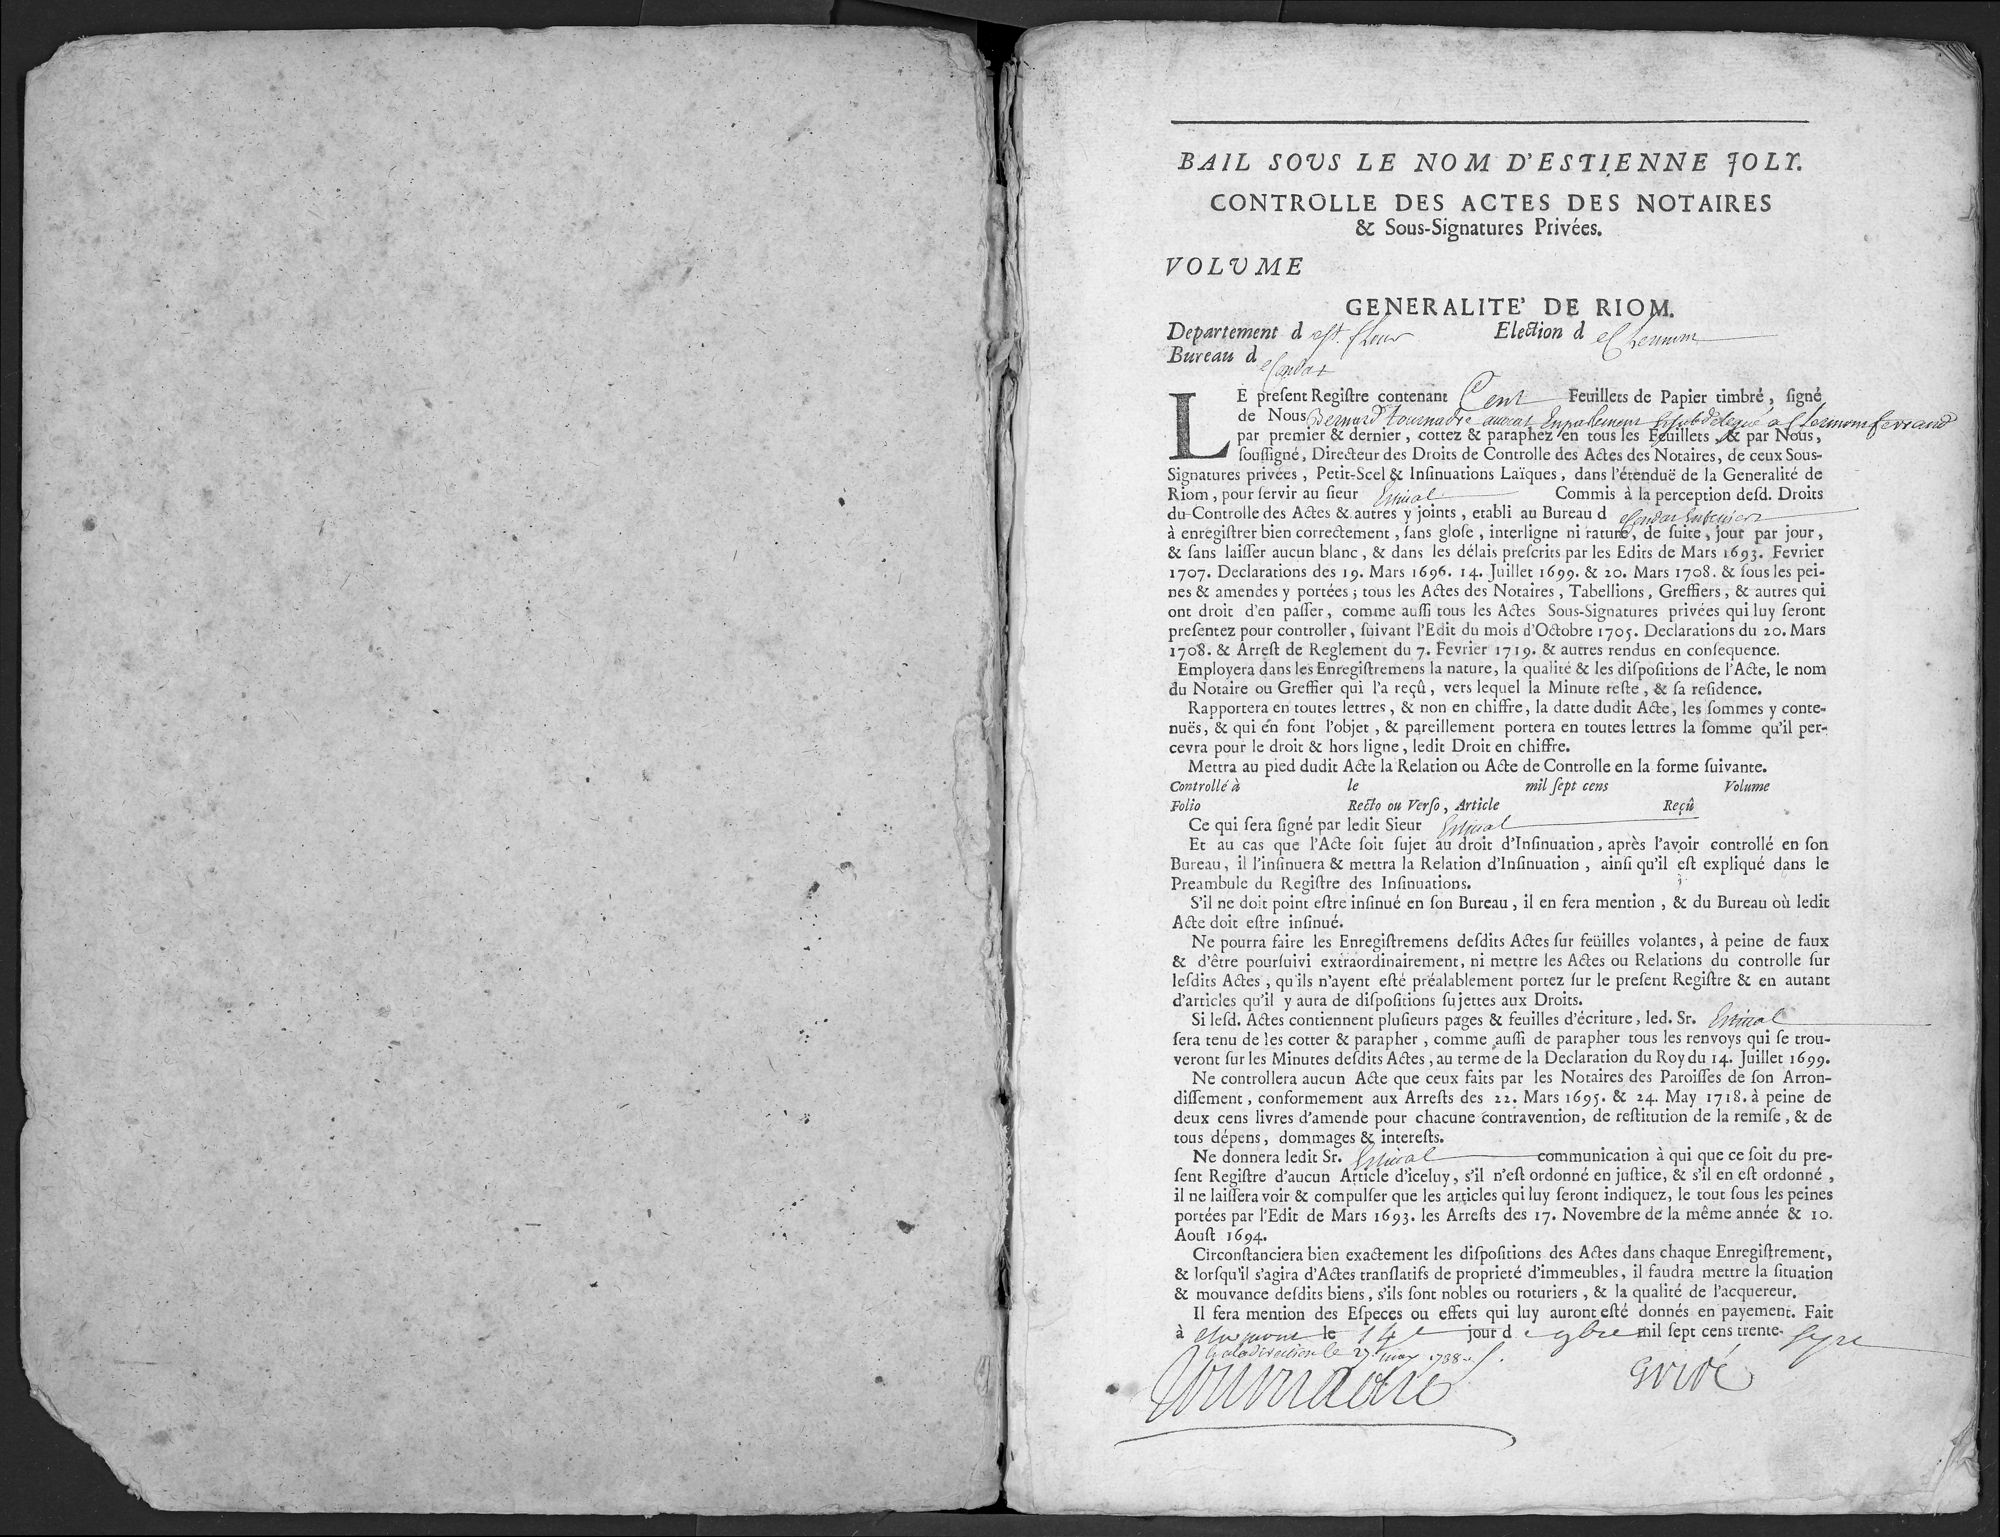 BAIL SOUS LE NOM D'ESTIENNE JOLY.
CONTROLLE DES ACTES DES NOTAIRES
& Sous-Signatures Privées.
VOLUME
GENERALITE' DE RIOM.
Departement d e St. flour Election d e Clermont
Bureau d e Condat
LE preſent Regiſtre contenant Cent Feuillets de Papier timbré, ſigné
de Nous Bernard tournadre avocat En parlement & subdelegué a Clermontferrand
par premier & dernier, cottez & paraphez en tous les Feuillets, & par Nous,
ſouſſigné, Directeur des Droits de Controlle des Actes des Notaires, de ceux Sous-
Signatures privées, Petit-Scel & Inſinuations Laïques, dans l'étenduë de la Generalité de
Riom, pour ſervir au ſieur Commis à la perception deſd. Droits
du Controlle des Actes & autres y joints, etabli au Bureau d e Condat
à enregiſtrer bien correctement, ſans gloſe, interligne ni rature, de ſuite, jour par jour,
& ſans laiſſer aucun blanc, & dans les délais preſcrits par les Edits de Mars 1693. Fevrier
1707. Declarations des 19. Mars 1696. 14. Juillet 1699. & 20. Mars 1708. & ſous les pei-
nes & amendes y portées; tous les Actes des Notaires, Tabellions, Greffiers, & autres qui
ont droit d'en paſſer, comme auſſi tous les Actes Sous-Signatures privées qui luy ſeront
preſentez pour controller, ſuivant l'Edit du mois d'Octobre 1705. Declarations du 20. Mars
1708. & Arreſt de Reglement du 7. Fevrier 1719. & autres rendus en conſequence.
Employera dans les Enregiſtremens la nature, la qualité & les diſpoſitions de l'Acte, le nom
du Notaire ou Greffier qui l'a reçû, vers lequel la Minute reſte, & ſa reſidence.
Rapportera en toutes lettres, & non en chiffre, la datte dudit Acte, les ſommes y conte-
nuës, & qui en font l'objet, & pareillement portera en toutes lettres la ſomme qu'il per-
cevra pour le droit & hors ligne, ledit Droit en chiffre.
Mettra au pied dudit Acte la Relation ou Acte de Controlle en la forme ſuivante.
Controllé à le mil ſept cens Volume
Folio Recto ou Verſo, Article Reçû
Ce qui ſera ſigné par ledit Sieur
Et au cas que l'Acte ſoit ſujet au droit d'Inſinuation, après l'avoir controllé en ſon
Bureau, il l'inſinuera & mettra la Relation d'Inſinuation, ainſi qu'il eſt expliqué dans le
Preambule du Regiſtre des Inſinuations.
S'il ne doit point eſtre inſinué en ſon Bureau, il en fera mention, & du Bureau où ledit
Acte doit eſtre inſinué.
Ne pourra faire les Enregiſtremens deſdits Actes ſur feüilles volantes, à peine de faux
& d'être pourſuivi extraordinairement, ni mettre les Actes ou Relations du controlle ſur
leſdits Actes, qu'ils n'ayent eſté préalablement portez ſur le preſent Regiſtre & en autant
d'articles qu'il y aura de diſpoſitions ſujettes aux Droits.
Si leſd. Actes contiennent pluſieurs pages & feuilles d'écriture, led. Sr.
ſera tenu de les cotter & parapher, comme auſſi de parapher tous les renvoys qui ſe trou-
veront ſur les Minutes deſdits Actes, au terme de la Declaration du Roy du 14. Juillet 1699.
Ne controllera aucun Acte que ceux faits par les Notaires des Paroiſſes de ſon Arron-
diſſement, conformement aux Arreſts des 22. Mars 1695. & 24. May 1718. à peine de
deux cens livres d'amende pour chacune contravention, de reſtitution de la remiſe, & de
tous dépens, dommages & intereſts.
Ne donnera ledit Sr. communication à qui que ce ſoit du pre-
ſent Regiſtre d'aucun Article d'iceluy, s'il n'eſt ordonné en juſtice, & s'il en eſt ordonné,
il ne laiſſera voir & compulſer que les articles qui luy ſeront indiquez, le tout ſous les peines
portées par l'Edit de Mars 1693. les Arreſts des 17. Novembre de la même année & 10.
Aouſt 1694.
Circonſtanciera bien exactement les diſpoſitions des Actes dans chaque Enregiſtrement,
& lorſqu'il s'agira d'Actes tranſlatifs de proprieté d'immeubles, il faudra mettre la ſituation
& mouvance deſdits biens, s'ils ſont nobles ou roturiers, & la qualité de l'acquereur.
Il fera mention des Eſpeces ou effets qui luy auront eſté donnés en payement. Fait
à Clermont le 14e jour d e 9bre mil ſept cens trente- sept
le 27 may 1738
Tournadre